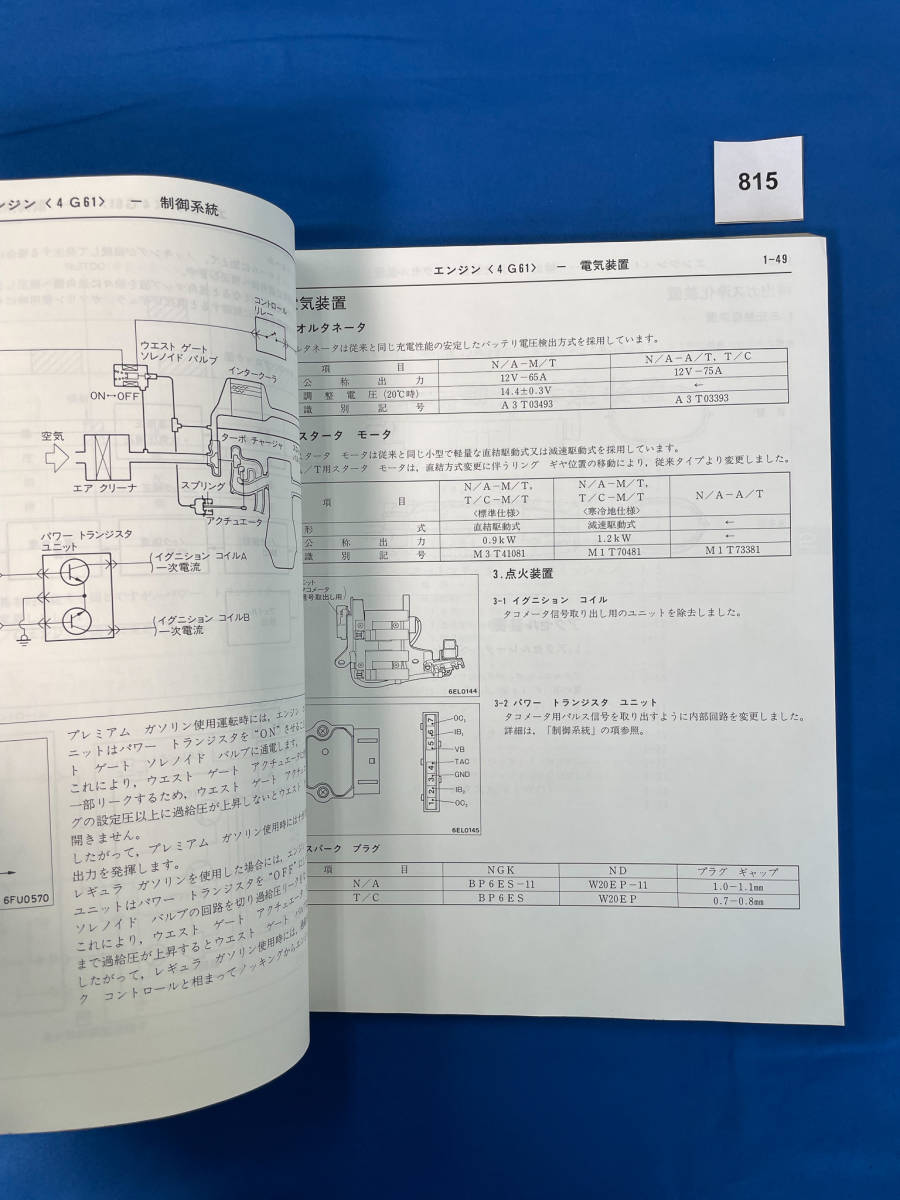 815
ンジン〈4 G61〉 ー 制御系統
コントロール
リレー
ウエスト ゲート
ソレノイド バルブ
ON↔OFF
インタークーラ
空気
ターボ チャージャ
エア クリーナ
スプリング
アクチュエータ
パワー トランジスタ
ユニット
イグニション コイルA
一次電流
イグニション コイルB
一次電流
6FU0570
プレミアム ガソリン使用運転時には,エンジン
ニットはパワー トランジスタを“ON”させるこ
ト ゲート ソレノイド バルブに通電します。
これにより,ウエスト ゲート アクチュエータに
一部リークするため,ウエスト ゲート アクチュ
グの設定圧以上に過給圧が上昇しないとウエスト
開きません。
したがって,プレミアム ガソリン使用時には十
出力を発揮します。
レギュラ ガソリンを使用した場合には,エンジ
ユニットはパワー トランジスタを“OFF”に
ソレノイド バルブの回路を切り過給圧リークを
これにより,ウエスト ゲート アクチュエータ
まで過給圧が上昇するとウエスト ゲート バル
したがって,レギュラ ガソリン使用時には,
ク コントロールと相まってノッキングからエン
エンジン〈4 G61〉 ー 電気装置
1-49
電気装置
オルタネータ
ルタネータは従来と同じ充電性能の安定したバッテリ電圧検出方式を採用しています。
項 目 N/A-M/T N/A-A/T, T/C
公 称 出 力 12V-65A 12V-75A
調 整 電 圧 (20℃時) 14.4±0.3V ←
識 別 記 号 A3T03493 A3T03393
スタータ モータ
タータ モータは従来と同じ小型で軽量な直結駆動式又は減速駆動式を採用しています。
/T用スタータ モータは,直結方式変更に伴うリング ギヤ位置の移動により,従来タイプより変更しました。
項 目 N/A-M/T, T/C-M/T 〈標準仕様〉 N/A-M/T, T/C-M/T 〈寒冷地仕様〉 N/A-A/T
形 式 直結駆動式 減速駆動式 ←
公 称 出 力 0.9kW 1.2kW ←
識 別 記 号 M3T41081 M1T70481 M1T73381
ニット
タコメータ
信号取出し用)
6EL0144
3.点火装置
3-1 イグニション コイル
タコメータ信号取り出し用のユニットを除去しました。
OC₁
IB₁
VB
TAC
GND
IB₂
OC₂
7
6
5
4
3
2
1
6EL0145
3-2 パワー トランジスタ ユニット
タコメータ用パルス信号を取り出すように内部回路を変更しました。
詳細は,「制御系統」の項参照。
スパーク プラグ
項 目 NGK ND プラグ ギャップ
N/A BP6ES-11 W20EP-11 1.0-1.1mm
T/C BP6ES W20EP 0.7-0.8mm